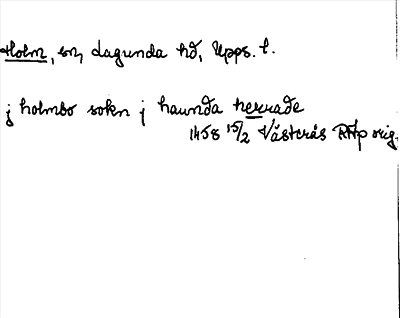 Holm, sn, Lagunda hd, Upps. l.
j holmbo sokn j haunda herrade
1458 15/2 Västerås RAp orig.